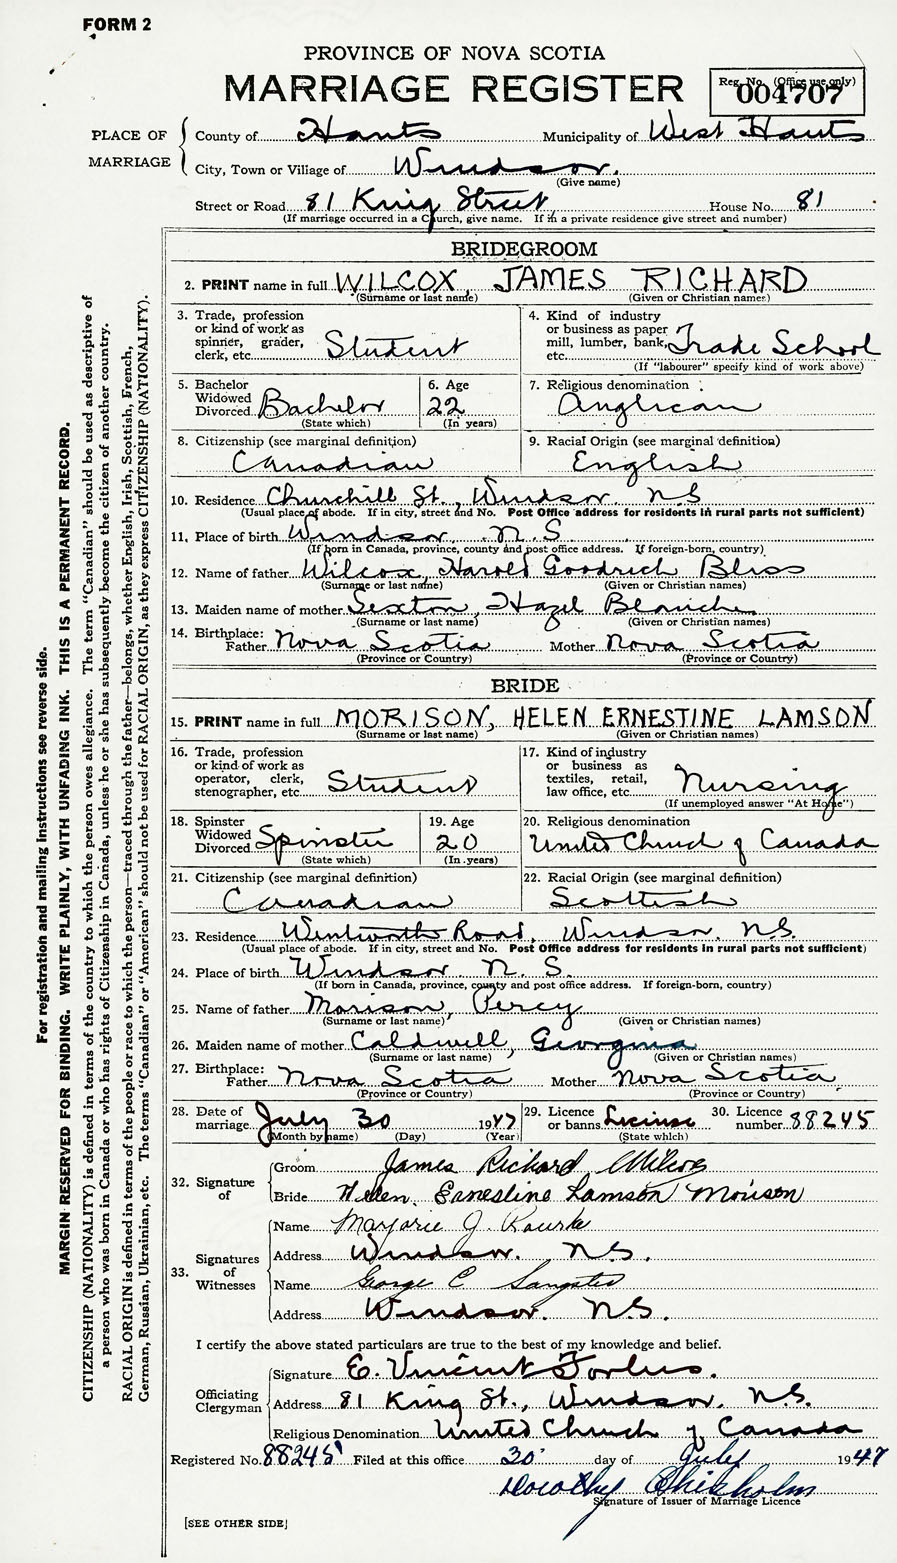 FORM 2
PROVINCE OF NOVA SCOTIA
MARRIAGE REGISTER
Reg. No. (Office use only)
004707
PLACE OF MARRIAGE
County of Hants Municipality of West Hants
City, Town or Village of Windsor.
(Give name)
Street or Road 81 King Street, House No. 81
(If marriage occurred in a Church, give name. If in a private residence give street and number)
BRIDEGROOM
2. PRINT name in full WILCOX, JAMES RICHARD
(Surname or last name) (Given or Christian names)
3. Trade, profession or kind of work as spinner, grader, clerk, etc. Student
4. Kind of industry or business as paper mill, lumber, bank, etc. Trade School
(If "labourer" specify kind of work above)
5. Bachelor Widowed Divorced Bachelor
(State which)
6. Age 22
(In years)
7. Religious denomination Anglican
8. Citizenship (see marginal definition) Canadian
9. Racial Origin (see marginal definition) English
10. Residence Churchill St., Windsor. NS
(Usual place of abode. If in city, street and No. Post Office address for residents in rural parts not sufficient)
11. Place of birth Windsor, N.S
(If born in Canada, province, county and post office address. If foreign-born, country)
12. Name of father Wilcox, Harold Goodrich Bliss
(Surname or last name) (Given or Christian names)
13. Maiden name of mother Sexton, Hazel Blanche
(Surname or last name) (Given or Christian names)
14. Birthplace: Father Nova Scotia Mother Nova Scotia
(Province or Country) (Province or Country)
BRIDE
15. PRINT name in full MORISON, HELEN ERNESTINE LAMSON
(Surname or last name) (Given or Christian names)
16. Trade, profession or kind of work as operator, clerk, stenographer, etc. Student
17. Kind of industry or business as textiles, retail, law office, etc. Nursing
(If unemployed answer "At Home")
18. Spinster Widowed Divorced Spinster
(State which)
19. Age 20
(In years)
20. Religious denomination United Church of Canada
21. Citizenship (see marginal definition) Canadian
22. Racial Origin (see marginal definition) Scottish
23. Residence Wentworth Road, Windsor. N.S.
(Usual place of abode. If in city, street and No. Post Office address for residents in rural parts not sufficient)
24. Place of birth Windsor N. S.
(If born in Canada, province, county and post office address. If foreign-born, country)
25. Name of father Morison, Percy
(Surname or last name) (Given or Christian names)
26. Maiden name of mother Caldwell, Georgina
(Surname or last name) (Given or Christian names)
27. Birthplace: Father Nova Scotia Mother Nova Scotia
(Province or Country) (Province or Country)
28. Date of marriage July 30 1947
(Month by name) (Day) (Year)
29. Licence or banns License
(State which)
30. Licence number 88245
32. Signature of
Groom James Richard Wilcox
Bride Helen Ernestine Lamson Morison
33. Signatures of Witnesses
Name Marjorie J. Rourke
Address Windsor. N.S.
Name George C Sangster
Address Windsor. N.S.
I certify the above stated particulars are true to the best of my knowledge and belief.
Officiating Clergyman
Signature E. Vincent Forbes.
Address 81 King St., Windsor, N.S.
Religious Denomination United Church of Canada
Registered No. 88245 Filed at this office 30 day of July 1947
Dorothy Chisholm
Signature of Issuer of Marriage Licence
[SEE OTHER SIDE]
For registration and mailing instructions see reverse side.
MARGIN RESERVED FOR BINDING. WRITE PLAINLY, WITH UNFADING INK. THIS IS A PERMANENT RECORD.
CITIZENSHIP (NATIONALITY) is defined in terms of the country to which the person owes allegiance. The term "Canadian" should be used as descriptive of
a person who was born in Canada or who has rights of Citizenship in Canada, unless he or she has subsequently become the citizen of another country.
RACIAL ORIGIN is defined in terms of the people or race to which the person—traced through the father—belongs, whether English, Irish, Scottish, French,
German, Russian, Ukrainian, etc. The terms "Canadian" or "American" should not be used for RACIAL ORIGIN, as they express CITIZENSHIP (NATIONALITY).